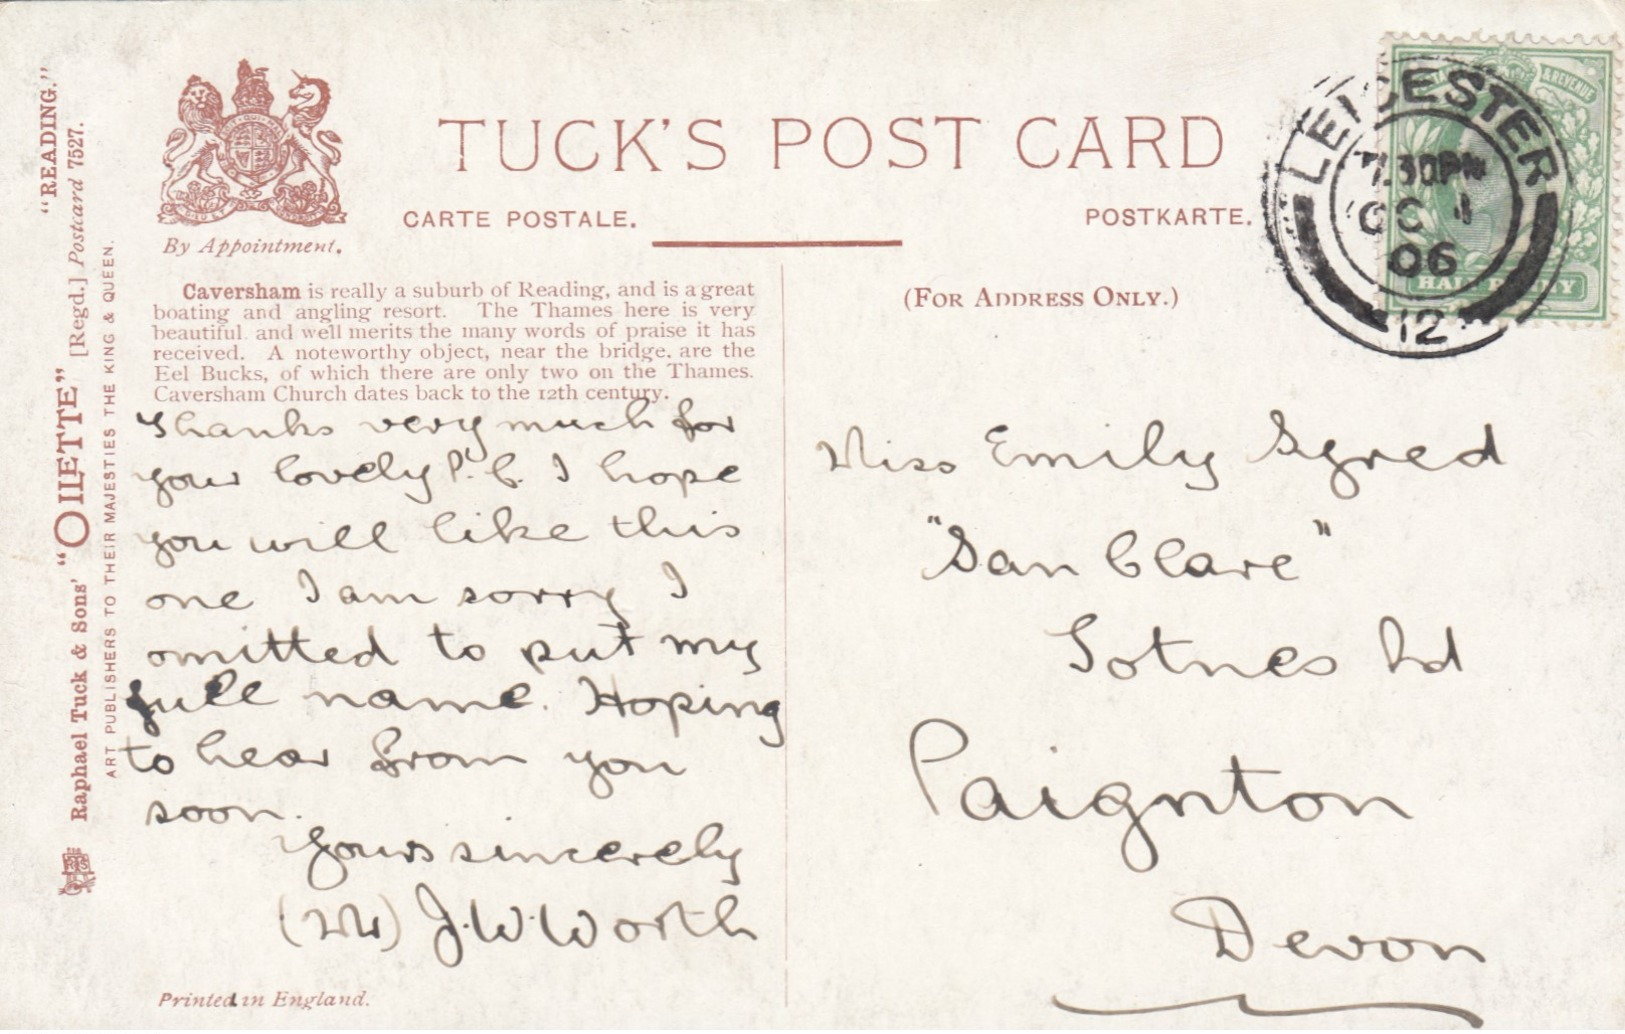 "READING."
Raphael Tuck & Sons' "OILETTE" [Regd.] Postcard 7527.
ART PUBLISHERS TO THEIR MAJESTIES THE KING & QUEEN.
By Appointment.
TUCK'S POST CARD
CARTE POSTALE.
POSTKARTE.
Caversham is really a suburb of Reading, and is a great
boating and angling resort. The Thames here is very
beautiful and well merits the many words of praise it has
received. A noteworthy object, near the bridge, are the
Eel Bucks, of which there are only two on the Thames.
Caversham Church dates back to the 12th century.
Thanks very much for
your lovely P.C. I hope
you will like this
one I am sorry I
omitted to put my
full name. Hoping
to hear from you
soon.
Yours sincerely
J. W. Worth
Printed in England.
(FOR ADDRESS ONLY.)
Miss Emily
"San Clare"
Totnes Rd
Paignton
Devon
LEICESTER
7.30PM
OC
06
12
& REVENUE
HALF PENNY